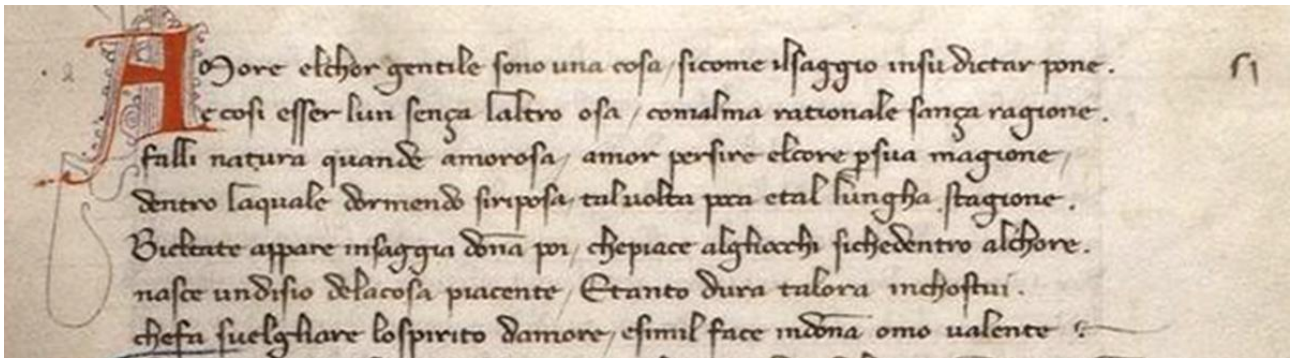 AMore elchor gentile sono una cosa / sicome ilsaggio insu dictar pone.
e cosi esser lun sença laltro osa / comalma rationale sança ragione.
falli natura quande amorosa / amor persire elcore psua magione /
dentro laquale dormendo siriposa / tal uolta poca etal lungha stagione.
Bieltate appare insaggia dōna poi / chepiace algliocchi sichedentro alchore.
nasce undisio delacosa piacente / Etanto dura talora inchostui.
chefa suelgliare lospirito damore / esimil face indōna omo ualente